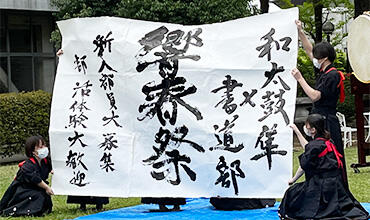 和太鼓隼
×
書道部
響春祭
新入部員大募集
部活体験大歓迎